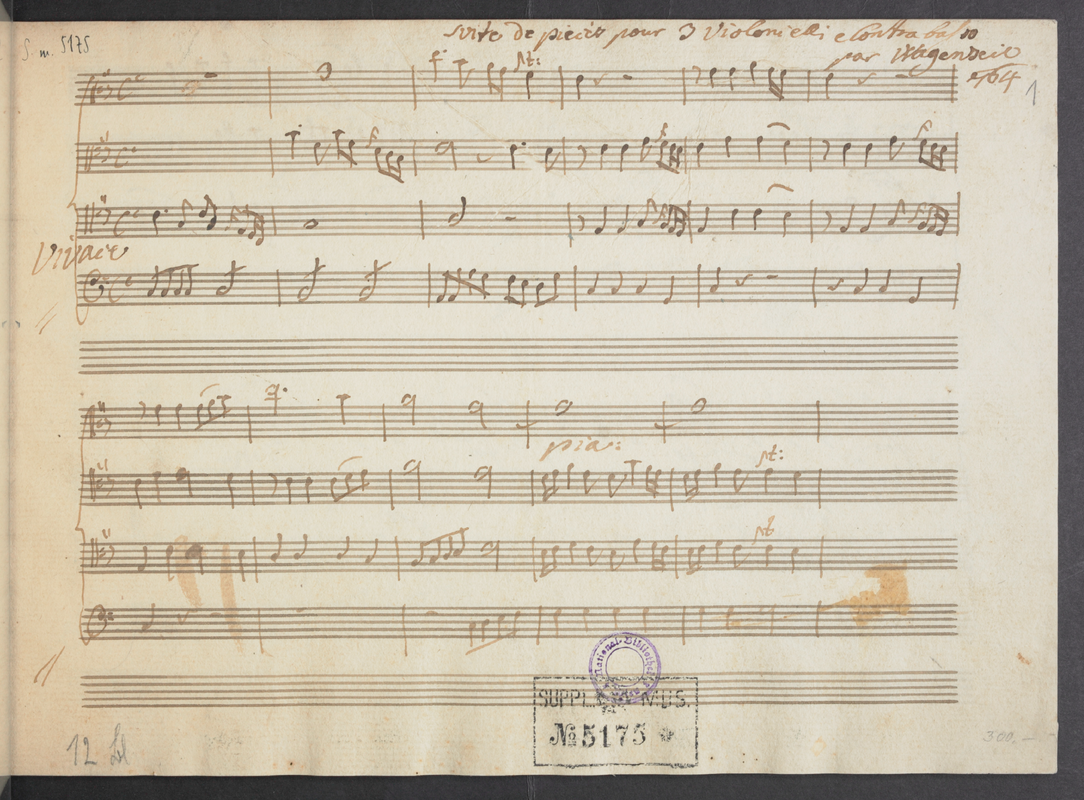 S. m. 5175
Suite de pieces pour 3 Violoncelli e Contrabasso
par Wagenseil
1764
1
f
Vivace
pia:
National-Bibliothek
SUPPL. MUS.
№ 5175 *
12 Bl
300.—